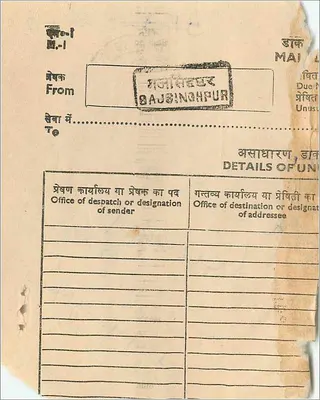 एम.-I
M.-I
डाक
MAI
प्रेषक
From
गजसिंहपुर
GAJSINGHPUR
Due
प्रेषित
Unusu
सेवा में
To
असाधारण, डाक
DETAILS OF UNU
प्रेषण कार्यालय या प्रेषक का पद
Office of despatch or designation
of sender
गन्तव्य कार्यालय या प्रेषिती का
Office of destination or designat
of addressee